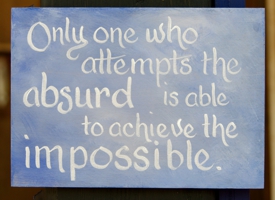 Only one who
attempts the
absurd is able
to achieve the
impossible.